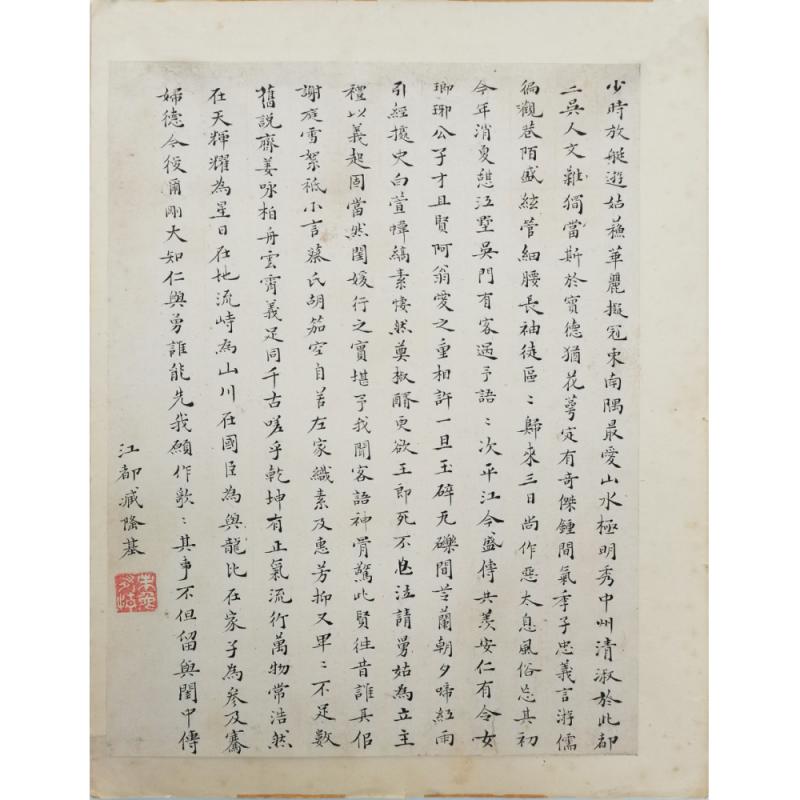 少時放艇遊姑蘇華麗擬冠東南隅最愛山水極明秀中州清淑於此都
二吳人文雜獨當斯於實德猶花萼定有奇傑鍾間氣季子忠義言游儒
徜觀巷陌盛絃管細腰長袖徒區〻歸來三日尚作惡太息風俗忘其初
今年消夏憩江墅吳門有客過予語〻次平江今盛傳共羨安仁有令女
瑯琊公子才且賢阿翁愛之重相許一旦玉碎瓦礫間芝蘭朝夕啼紅雨
引經據史白萱幃縞素悽然奠椒醑更欲王郎死不泣請舅姑為立主
禮以義起固當然閨媛行之實堪予我聞客語神骨驚此賢往昔誰具侶
謝庭雪絮祗小言蔡氏胡笳空自苦左家織素及惠芳抑又卑〻不足數
舊說齊姜咏柏舟雲霄義足同千古嗟乎乾坤有正氣流行萬物常浩然
在天輝耀為星日在地流峙為山川在國臣為與龍比在家子為參及騫
婦德令後爾剛大知仁與勇誰能先我願作歌〻其事不但留與閨中傳
江都臧隆基